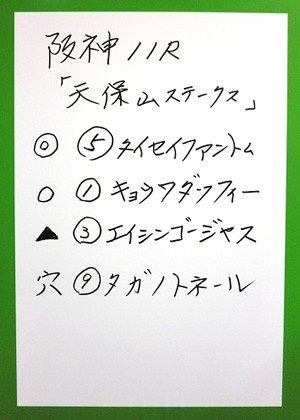 阪神11R
「天保山ステークス」
◎ ⑤タイセイファントム
○ ①キョウワダッフィー
▲ ③エイシンゴージャス
穴 ⑨タガノトネール